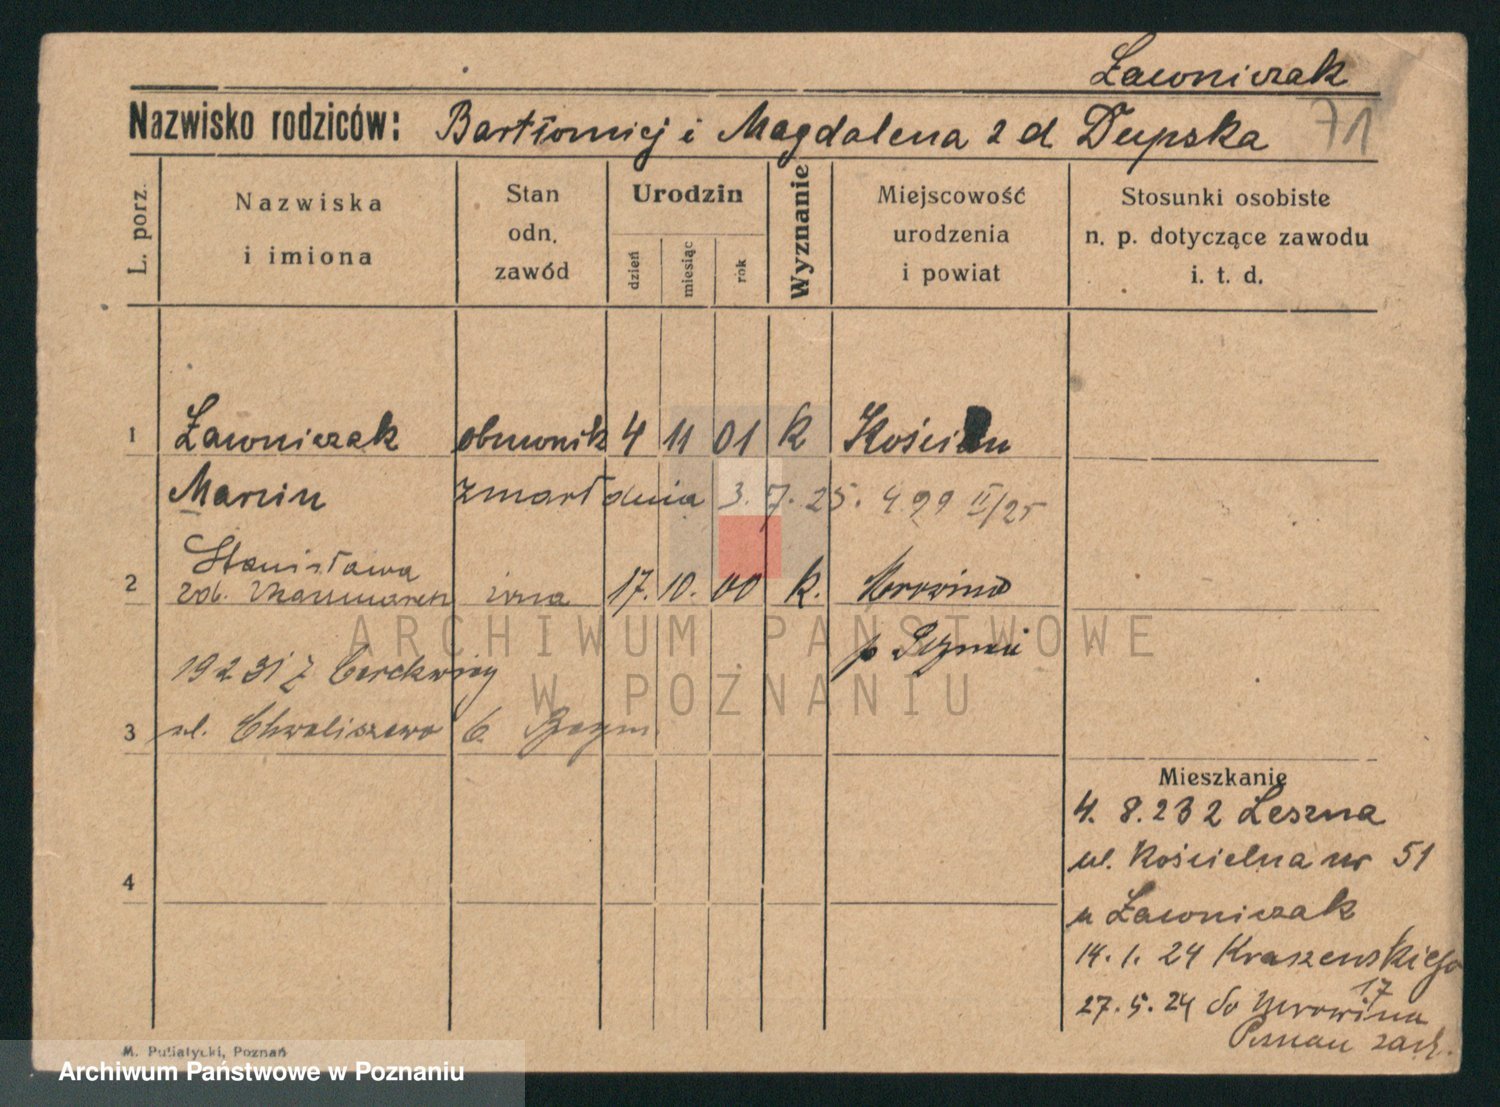 Ławniczak
Nazwisko rodziców: Bartłomiej i Magdalena z d Dupska
71
L. porz.
Nazwiska
i imiona
Stan
odn.
zawód
Urodzin
dzień
miesiąc
rok
Wyznanie
Miejscowość
urodzenia
i powiat
Stosunki osobiste
n. p. dotyczące zawodu
i. t. d.
1 Ławniczak obuwnik 4 11 01 k Kościan
Marcin zmarł dnia 3. 7. 25. 499 II/25
Stanisława
2 zd. żona 17. 10. 00 k.
p
19231 z Cerekwicy
3 ul. Chwaliszewo 6
Mieszkanie
4. 8. 232 Leszna
ul. Kościelna nr 51
4
u Ławniczak
14. 1. 24 Kraszewskiego
17
27. 5. 24 do Mrowina
Poznań zach.
M. Putiatycki, Poznań
ARCHIWUM PAŃSTWOWE
W POZNANIU
Archiwum Państwowe w Poznaniu